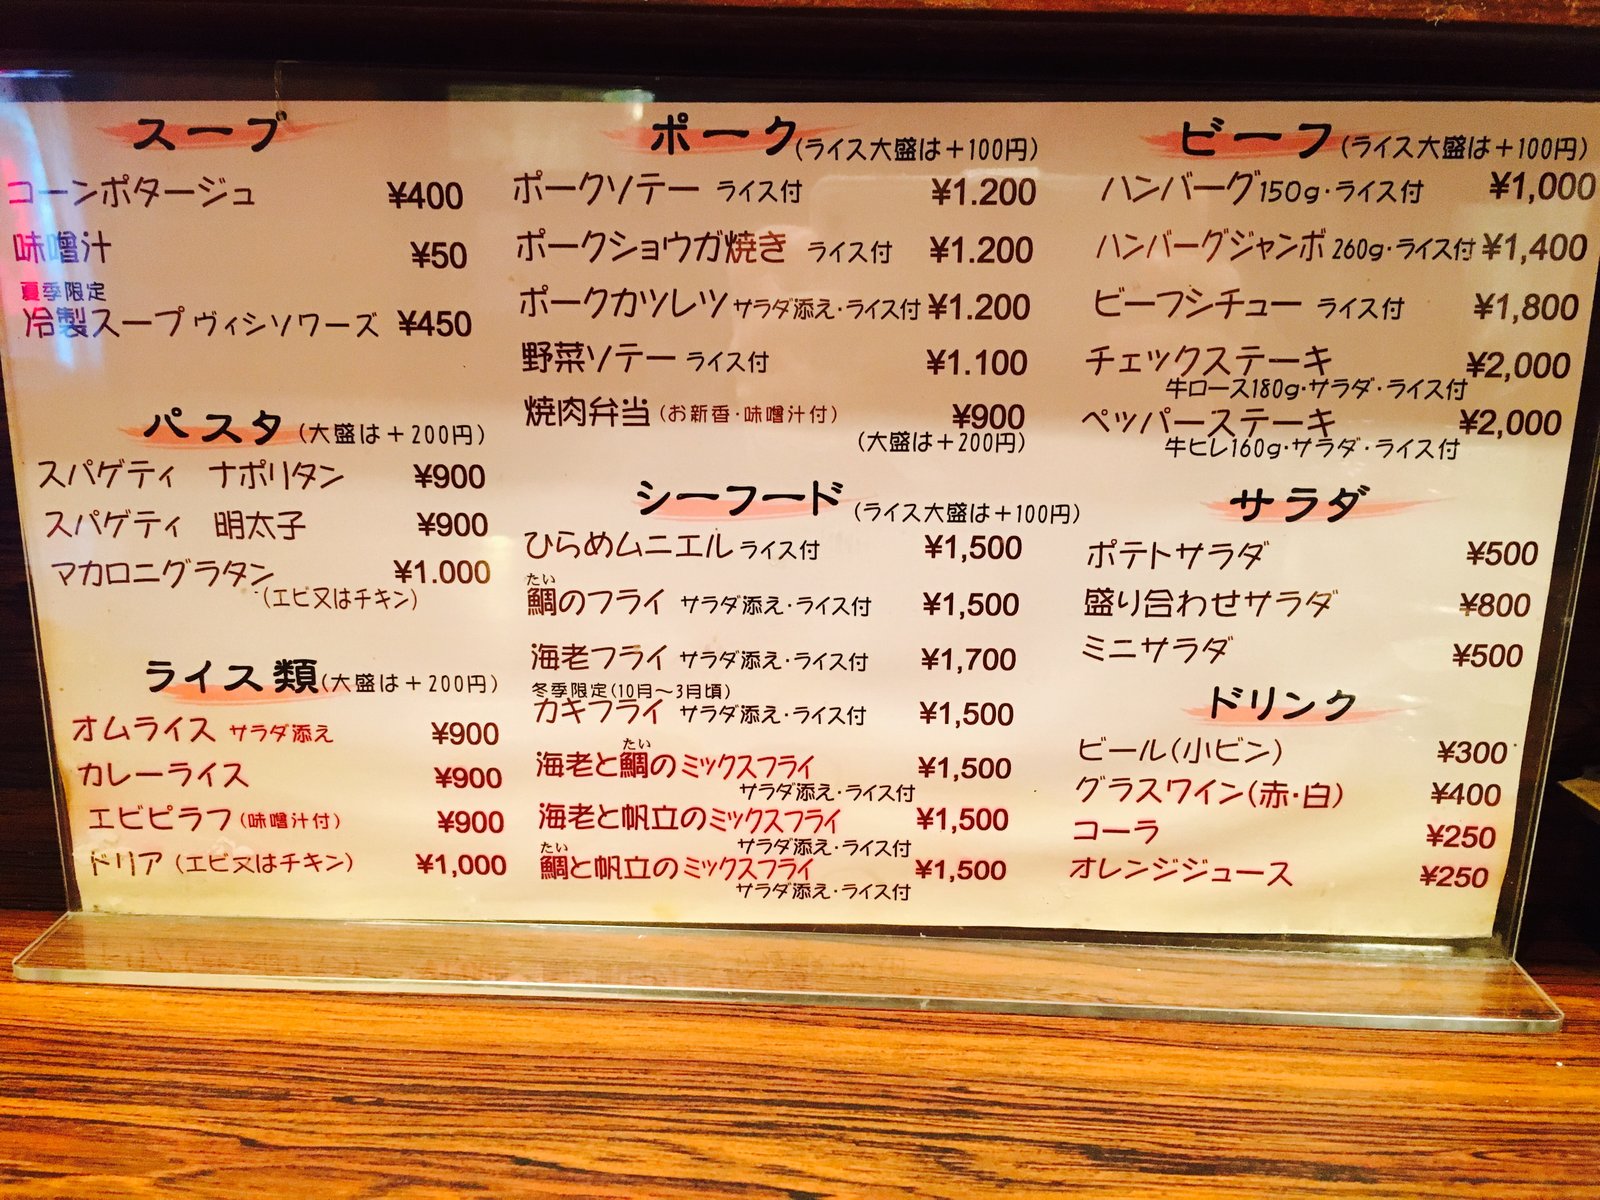 スープ
コーンポタージュ ¥400
味噌汁 ¥50
夏季限定
冷製スープ ヴィシソワーズ ¥450
パスタ (大盛は＋200円)
スパゲティ ナポリタン ¥900
スパゲティ 明太子 ¥900
マカロニグラタン ¥1.000
(エビ又はチキン)
ライス類 (大盛は＋200円)
オムライス サラダ添え ¥900
カレーライス ¥900
エビピラフ (味噌汁付) ¥900
ドリア (エビ又はチキン) ¥1,000
ポーク (ライス大盛は＋100円)
ポークソテー ライス付 ¥1.200
ポークショウガ焼き ライス付 ¥1.200
ポークカツレツ サラダ添え・ライス付 ¥1.200
野菜ソテー ライス付 ¥1.100
焼肉弁当 (お新香・味噌汁付) ¥900
(大盛は＋200円)
シーフード (ライス大盛は＋100円)
ひらめムニエル ライス付 ¥1,500
たい
鯛のフライ サラダ添え・ライス付 ¥1,500
海老フライ サラダ添え・ライス付 ¥1,700
冬季限定(10月〜3月頃)
カキフライ サラダ添え・ライス付 ¥1,500
たい
海老と鯛のミックスフライ ¥1,500
サラダ添え・ライス付
海老と帆立のミックスフライ ¥1,500
サラダ添え・ライス付
たい
鯛と帆立のミックスフライ ¥1,500
サラダ添え・ライス付
ビーフ (ライス大盛は＋100円)
ハンバーグ 150g・ライス付 ¥1,000
ハンバーグジャンボ 260g・ライス付 ¥1,400
ビーフシチュー ライス付 ¥1,800
チェックステーキ ¥2,000
牛ロース180g・サラダ・ライス付
ペッパーステーキ ¥2,000
牛ヒレ160g・サラダ・ライス付
サラダ
ポテトサラダ ¥500
盛り合わせサラダ ¥800
ミニサラダ ¥500
ドリンク
ビール(小ビン) ¥300
グラスワイン(赤・白) ¥400
コーラ ¥250
オレンジジュース ¥250